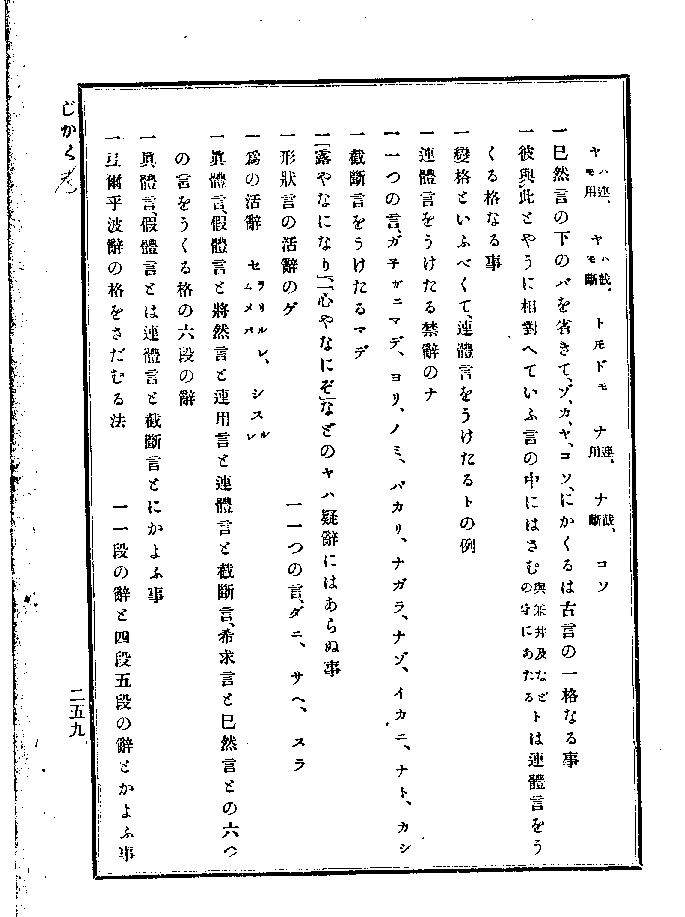 ヤハ連、モ用 ヤハ截、モ斷 トモドモ ナ連、用 ナ截、斷 コソ
一 已然言の下のバを省きて、ゾ、カ、ヤ、コソ、にかくるは古言の一格なる事
一 彼與此とやうに相對へていふ言の中にはさむ與並幷及などの字にあたるトは連體言をう
くる格なる事
一 變格といふべくて、連體言をうけたるトの例
一 連體言をうけたる禁辭のナ
一 一つの言、ガテガニマデ、ヨリ、ノミ、バカリ、ナガラ、ナゾ、イカニ、ナト、カシ
一 截斷言をうけたるマデ
一 「露やなになり」「心やなにぞ」などのヤハ疑辭にはあらぬ事
一 形狀言の活辭のゲ 一 一つの言、ダニ、サヘ、スラ
一 爲の活辭 セラリルレ、シスル ムメバ レ
一 眞體言、假體言と將然言と連用言と連體言と截斷言、希求言と已然言との六つ
の言をうくる格の六段の辭
一 眞體言、假體言とは連體言と截斷言とにかよふ事
一 弖爾乎波辭の格をさだむる法 一 一段の辭と四段五段の辭とかよふ事
じかく考
二五九